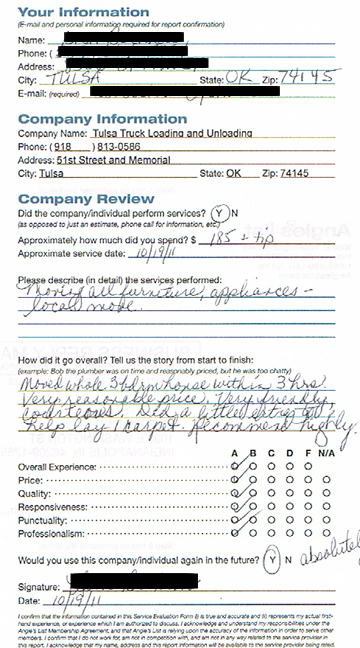 Your Information
(E-mail and personal information required for report confirmation)
Name:
Phone: (
Address:
City: TULSA State: OK Zip: 74145
E-mail: (required)
Company Information
Company Name: Tulsa Truck Loading and Unloading
Phone: (918 ) 813-0586
Address: 51st Street and Memorial
City: Tulsa State: OK Zip: 74145
Company Review
Did the company/individual perform services? Y N
(as opposed to just an estimate, phone call for information, etc)
Approximately how much did you spend? $ 185 + tip
Approximate service date: 10/19/11
Please describe (in detail) the services performed:
Moving all furniture, appliances -
local move.
How did it go overall? Tell us the story from start to finish:
(example: Bob the plumber was on time and reasonably priced, but he was too chatty)
Moved whole 3 bdrm house within 3 hrs.
Very reasonable price. Very friendly,
courteous. Did a little extra to
help lay 1 carpet. Recommend highly.
A B C D F N/A
Overall Experience:
Price:
Quality:
Responsiveness:
Punctuality:
Professionalism:
Would you use this company/individual again in the future? Y N absolutely
Signature:
Date: 10/19/11
I confirm that the information contained in this Service Evaluation Form (i) is true and accurate and (ii) represents my actual first-
hand experience, or experience which I am authorized to discuss. I acknowledge and understand my responsibilities under the
Angie's List Membership Agreement, and that Angie's List is relying upon the accuracy of the information in order to serve other
members. I confirm that I do not work for, am not in competition with, and am not in any way related to the service provider in
this report. I acknowledge that my name, address and this report information will be available to the service provider being rated.